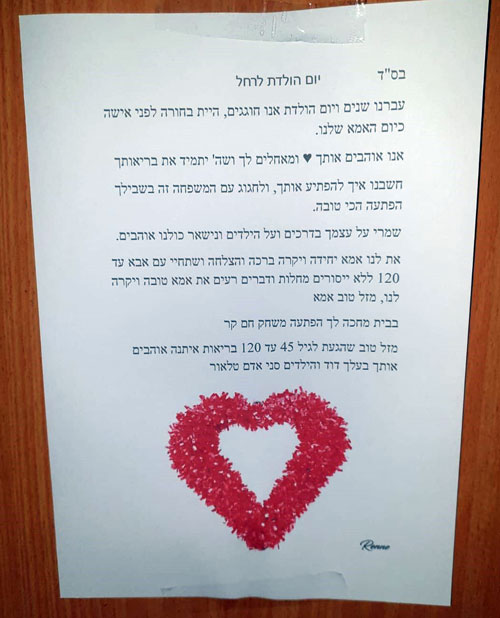 בס"ד
יום הולדת לרחל
עברנו שנים ויום הולדת אנו חוגגים, היית בחורה לפני אישה
כיום האמא שלנו.
אנו אוהבים אותך ♥ ומאחלים לך ושה' יתמיד את בריאותך
חשבנו איך להפתיע אותך, ולחגוג עם המשפחה זה בשבילך
הפתעה הכי טובה.
שמרי על עצמך בדרכים ועל הילדים ונישאר כולנו אוהבים.
את לנו אמא יחידה ויקרה ברכה והצלחה ושתחיי עם אבא עד
120 ללא ייסורים מחלות ודברים רעים את אמא טובה ויקרה
לנו, מזל טוב אמא
בבית מחכה לך הפתעה משחק חם קר
מזל טוב שהגעת לגיל 45 עד 120 בריאות איתנה אוהבים
אותך בעלך דוד והילדים סני אדם טלאור